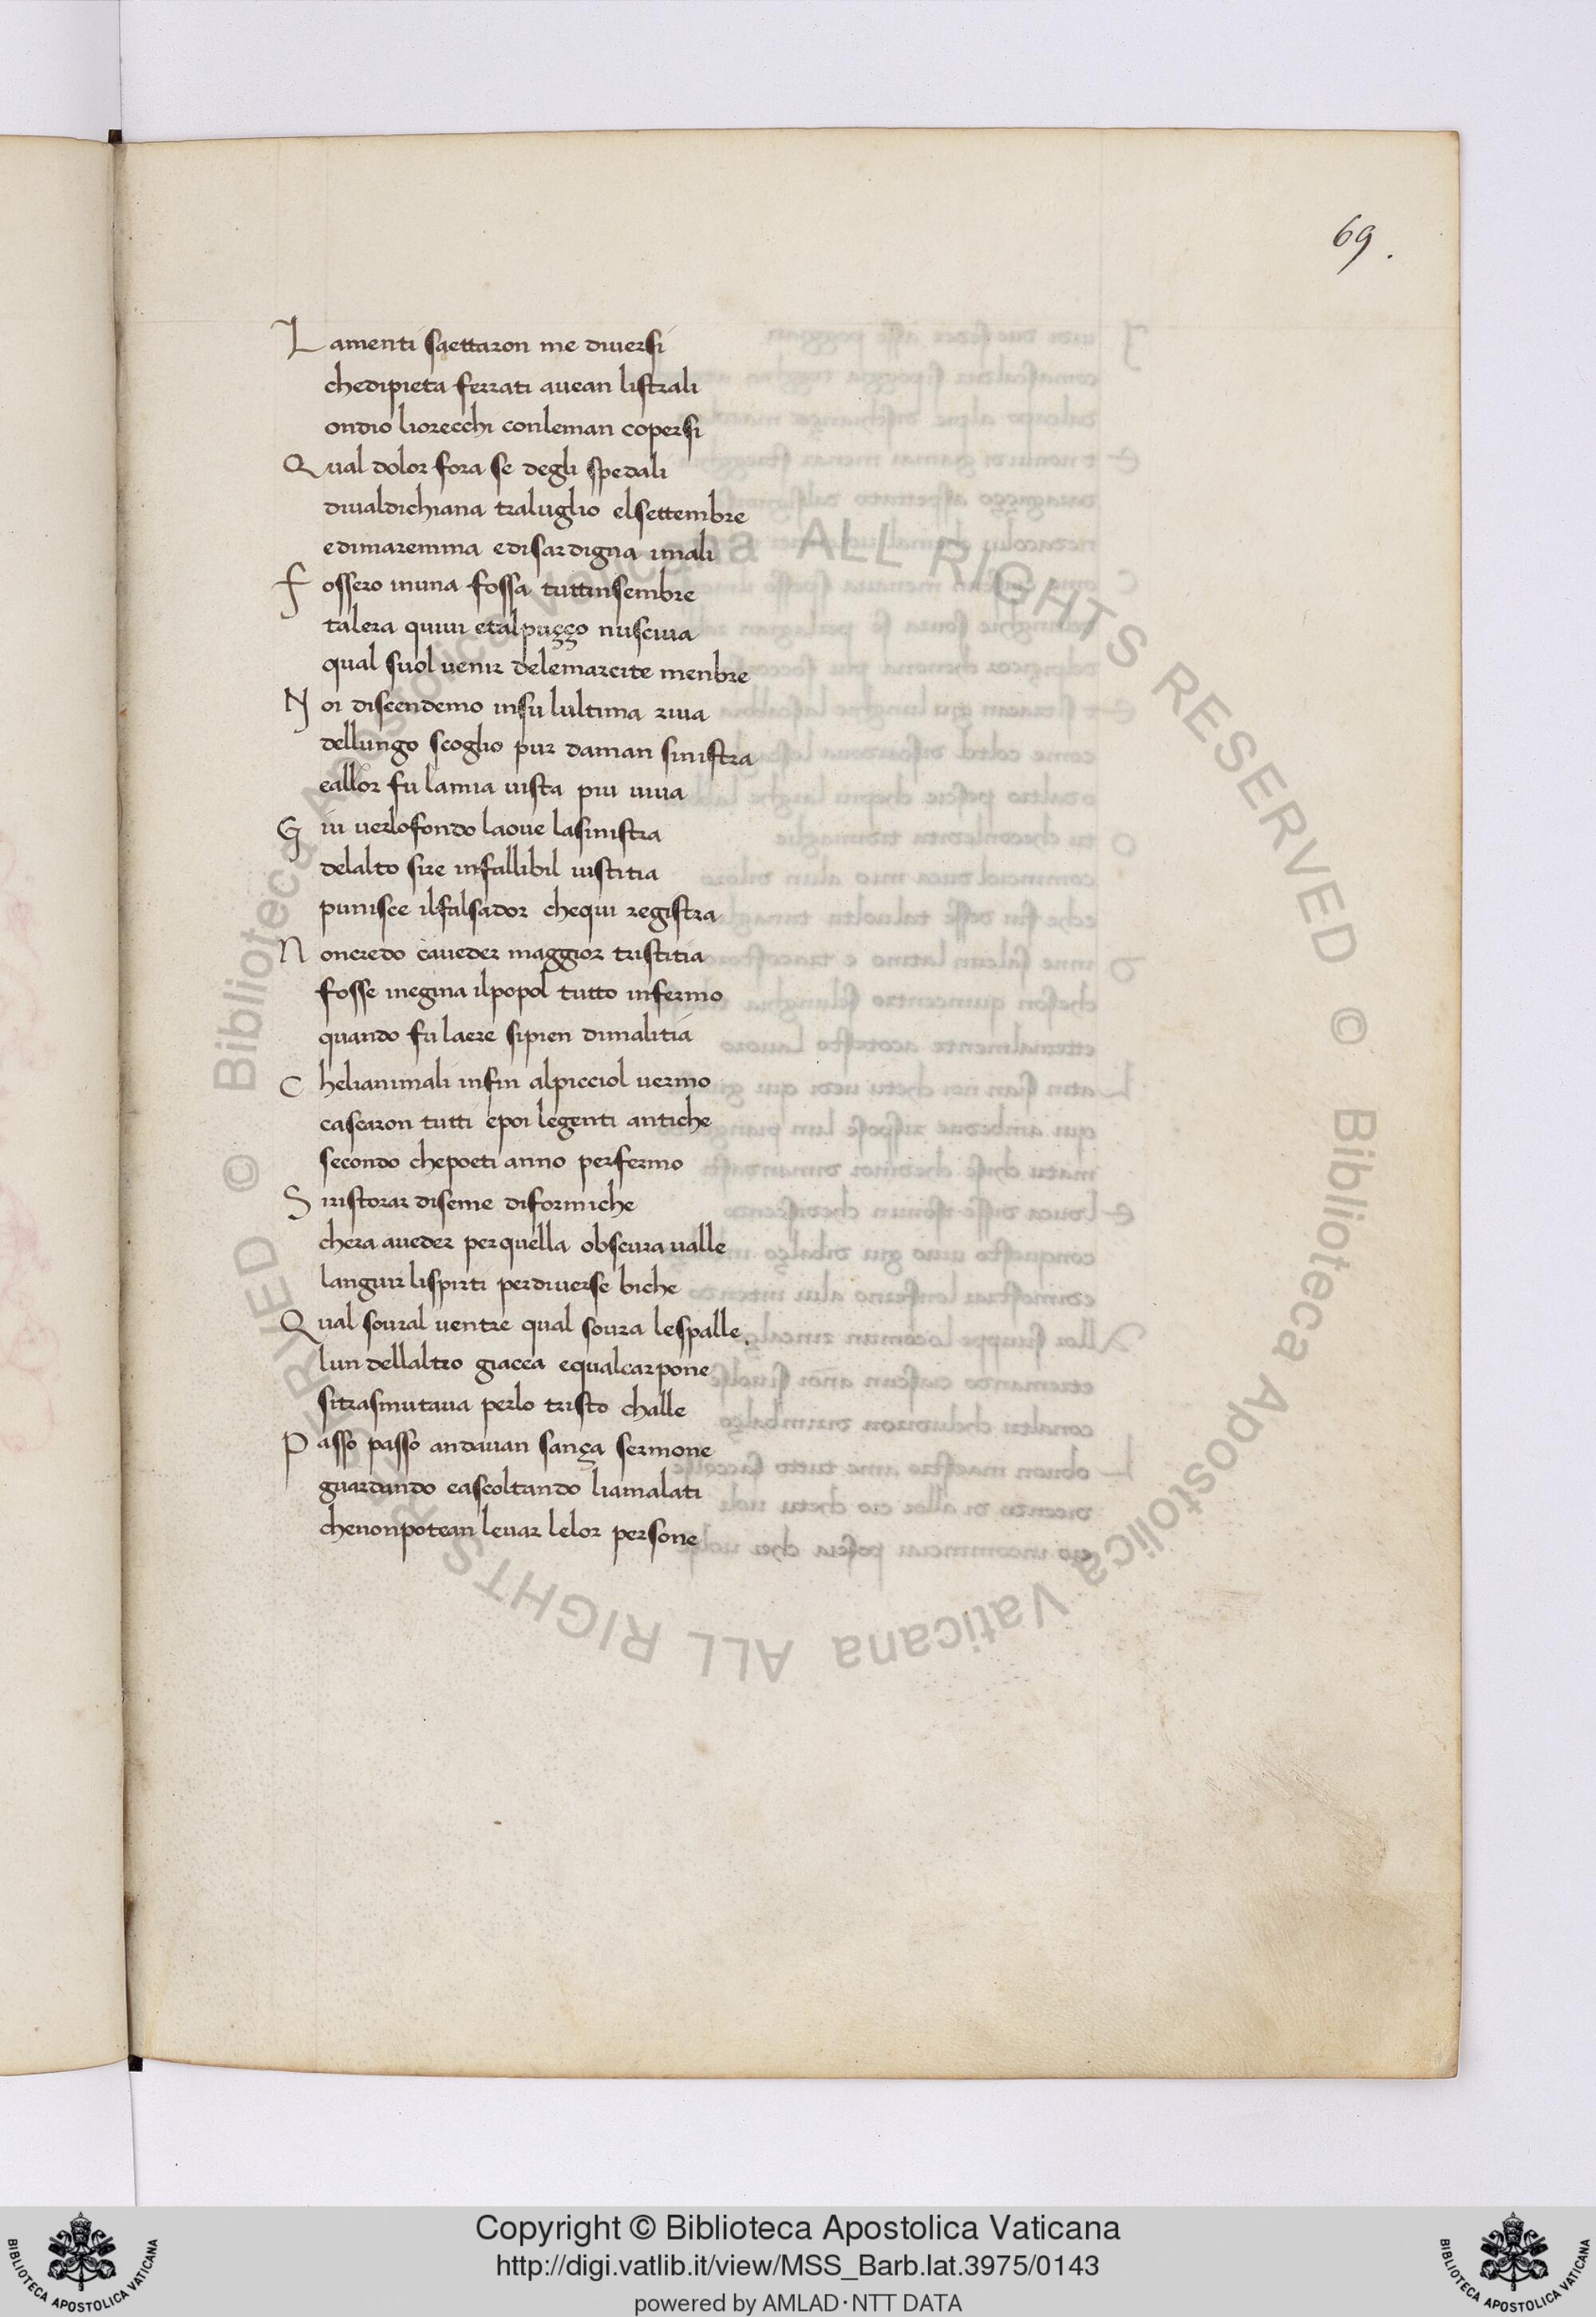 69.
Lamenti saettaron me diuersi
chedipieta ferrati auean listrali
ondio liorecchi conleman copersi
Qual dolor fora se degli spedali
diualdichiana traluglio elsettembre
edimaremma edisardigna imali
Fossero inuna fossa tuttinsembre
talera quiui etalpuççо nusciua
qual suol uenir delemarcite menbre
Noi discendemo insu lultima riua
dellungo scoglio pur daman sinistra
eallor fu lamia uista piu uiua
Giu uerlofondo laoue lasinistra
delalto sire infallibil iustitia
punisce ilfalsador chequi registra
Noncredo caueder maggior tristitia
fosse inegina ilpopol tutto infermo
quando fu laere sipien dimalitia
Chelianimali infin alpicciol uermo
cascaron tutti epoi legenti antiche
secondo chepoeti anno perfermo
Siristorar diseme diformiche
chera aueder perquella obscura ualle
languir lispirti perdiuerse biche
Qual soural uentre qual soura lespalle
lun dellaltro giacea equalcarpone
sitrasmutaua perlo tristo challe
Passo passo andauan sança sermone
guardando eascoltando liamalati
chenonpotean leuar lelor persone
© Biblioteca Apostolica Vaticana ALL RIGHTS RESERVED © Biblioteca Apostolica Vaticana ALL RIGHTS RESERVED
BIBLIOTECA APOSTOLICA VATICANA
Copyright © Biblioteca Apostolica Vaticana
http://digi.vatlib.it/view/MSS_Barb.lat.3975/0143
powered by AMLAD·NTT DATA
BIBLIOTECA APOSTOLICA VATICANA